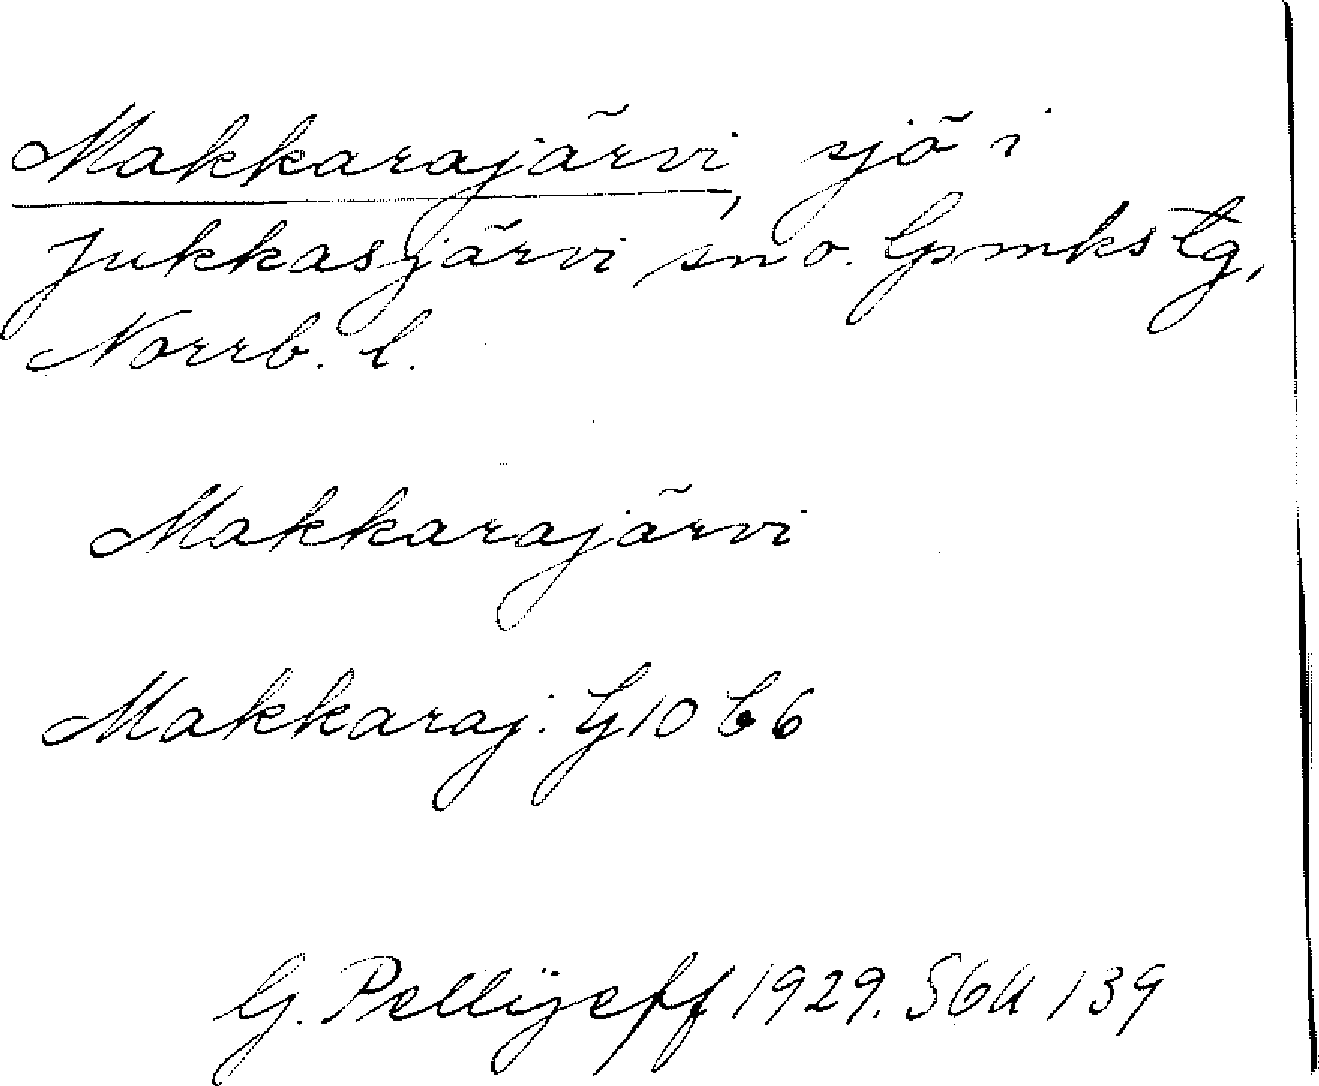 Makkarajärvi, sjö i
Jukkasjärvi sn o. lpmkstg,
Norrb. l.
Makkarajärvi
Makkaraj: G10 b6
G. Pellijeff 1929. SGU 139